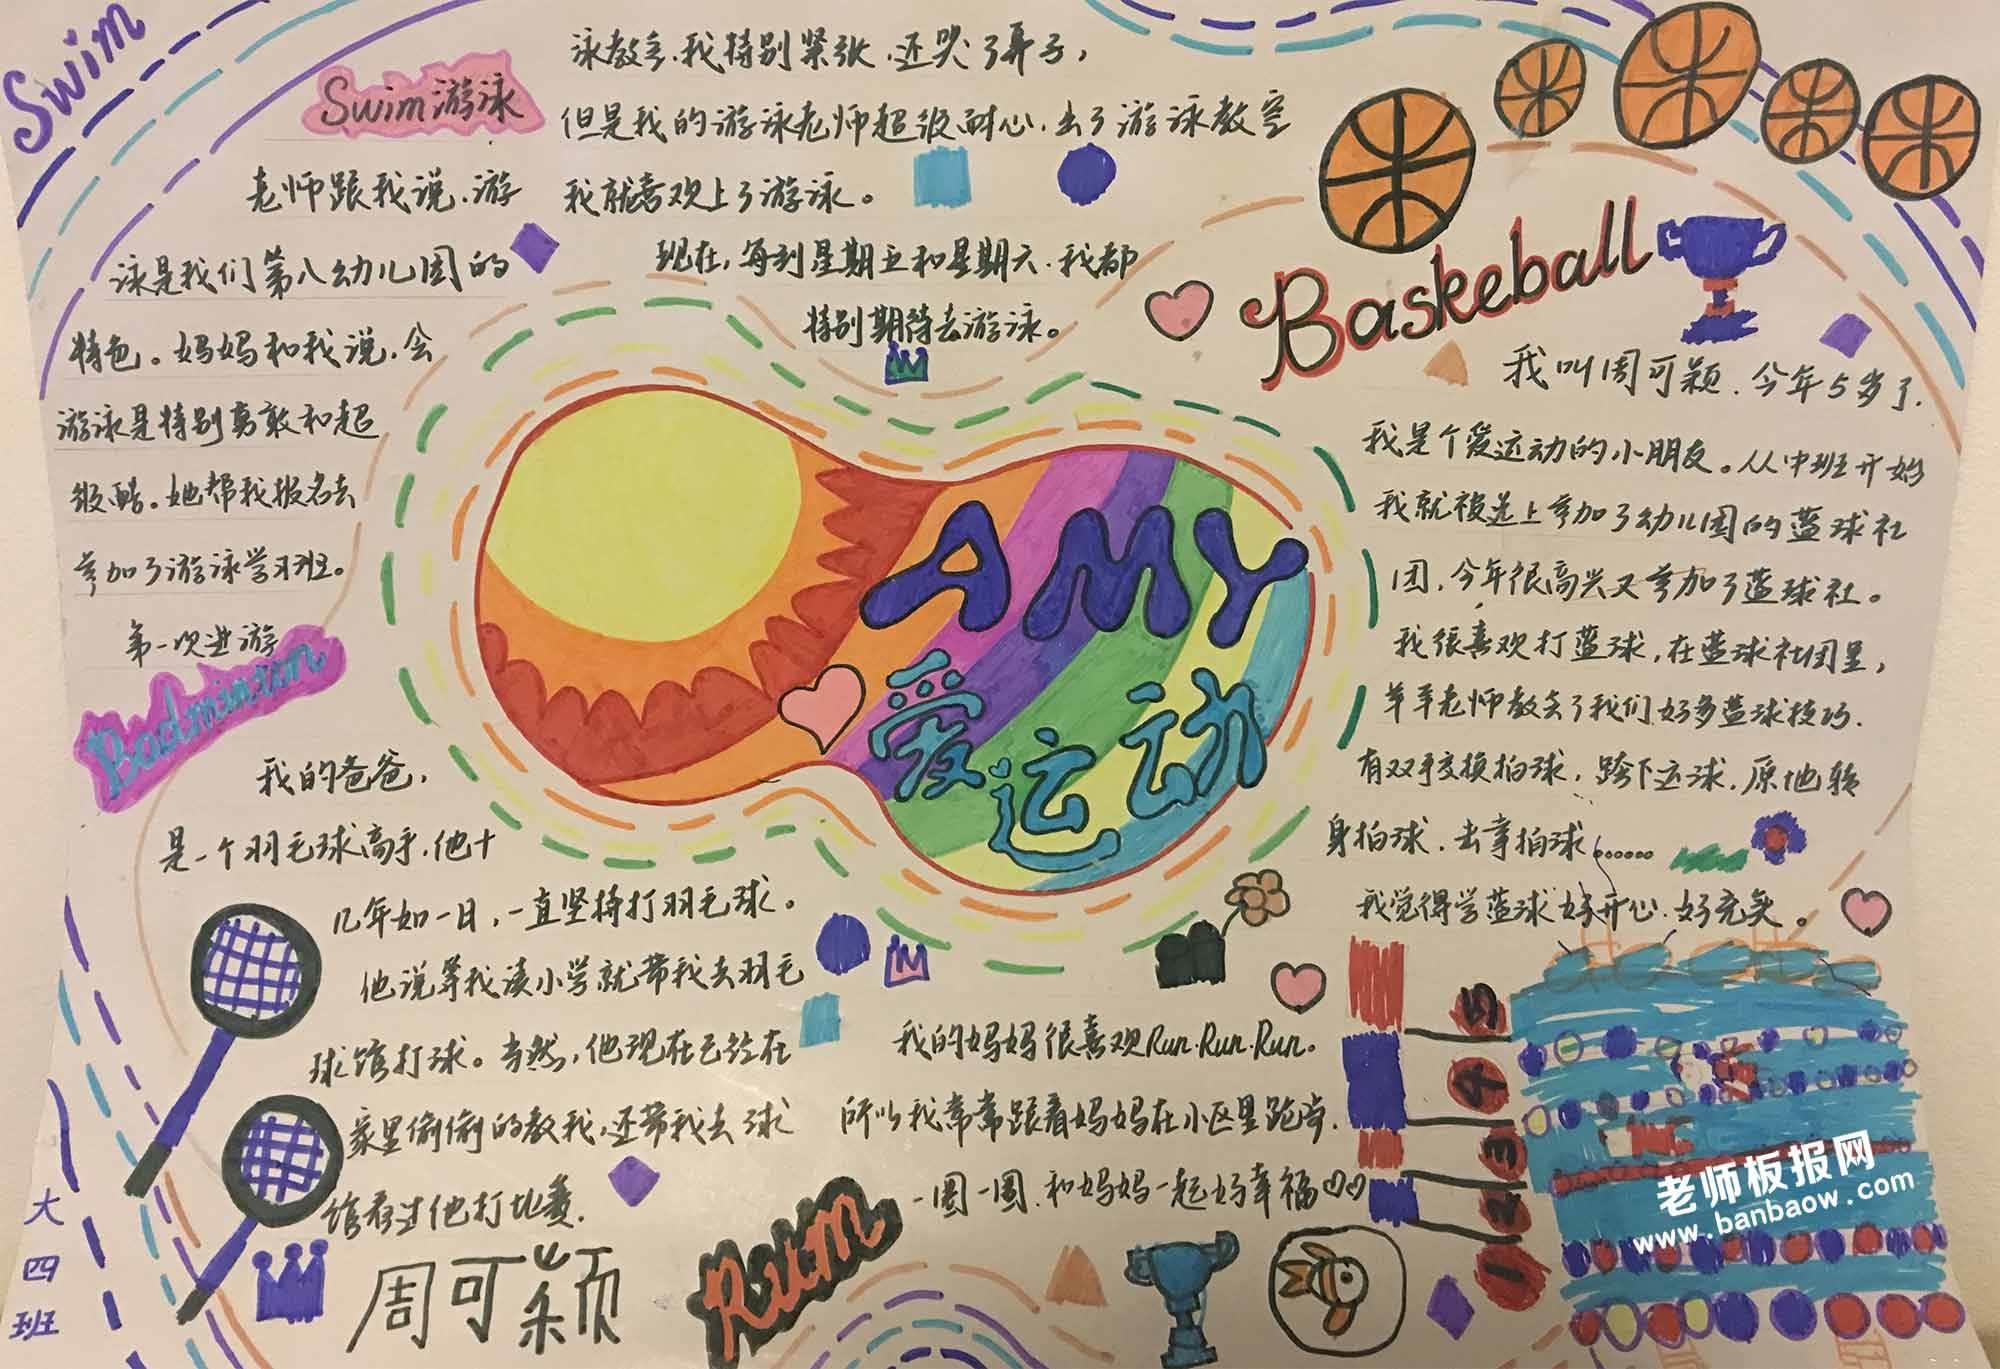 Swim
Swim游泳
老师跟我说,游
泳是我们第八幼儿园的
特色。妈妈和我说,会
游泳是特别勇敢和超
级酷。她帮我报名去
参加了游泳学习班。
第一次进游
泳教室,我特别紧张,还哭了鼻子,
但是我的游泳老师超级耐心,去了游泳教室
我就喜欢上了游泳。
现在,每到星期五和星期六,我都
特别期待去游泳。
Baskeball
我叫周可颖,今年5岁了,
我是个爱运动的小朋友。从中班开始
我就被选上参加了幼儿园的蓝球社
团,今年很高兴又参加了蓝球社。
我很喜欢打蓝球,在蓝球社团里,
羊羊老师教会了我们好多蓝球技巧.
有双手交换拍球,跨下运球,原地转
身拍球.去拿拍球......
我觉得学蓝球好开心.好充实。
AMY
爱运动
Badminton
我的爸爸,
是一个羽毛球高手,他十
几年如一日,一直坚持打羽毛球。
他说等我读小学就带我去羽毛
球馆打球。当然,他现在已经在
家里偷偷的教我,还带我去球
馆看过他打比赛.
我的妈妈很喜欢Run.Run.Run。
所以我常常跟着妈妈在小区里跑步.
一圈一圈.和妈妈一起好幸福
Run
5
4
3
2
1
大四班
周可颖
老师板报网
www.banbaow.com